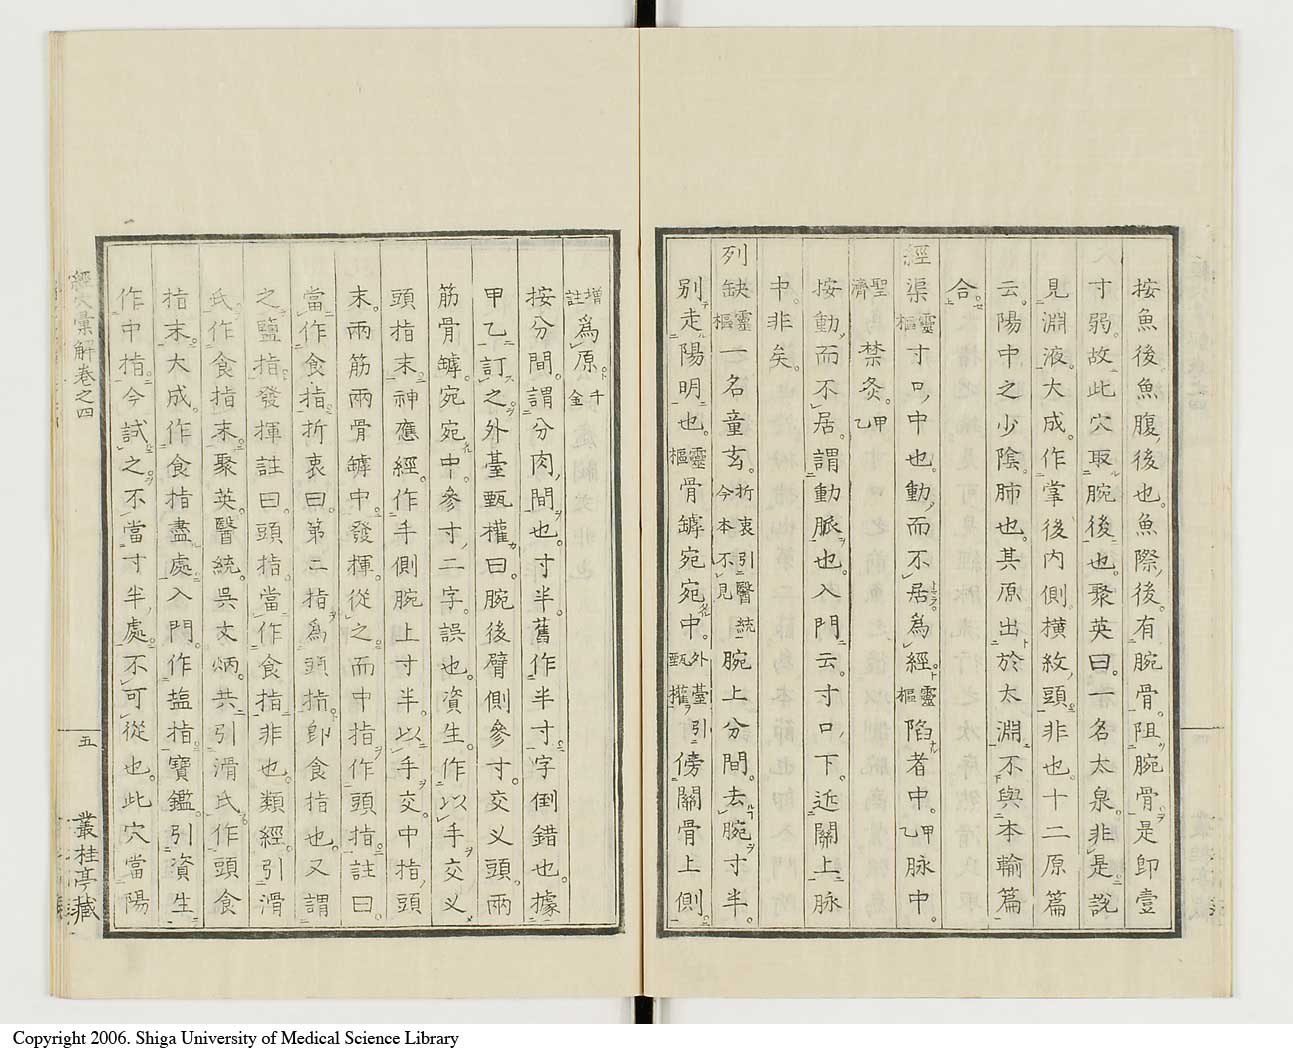 按魚後魚腹後也。魚際後。有腕骨。阻腕骨。是卽壹
寸弱。故此穴取腕後也。聚英曰。一名太泉。非是說
見淵液。大成。作掌後内側橫紋頭非也。十二原篇
云。陽中之少陰。肺也。其原出於太淵。不與本輸篇
合。
經渠靈樞寸口中也。動而不居為經。靈樞陷者中。甲乙脉中。
聖濟禁灸。甲乙
按動而不居。謂動脈也。入門云。寸口下。近關上脉
中。非矣。
列缺靈樞一名童玄。折衷引醫統今本不見腕上分間。去腕寸半。
別走陽明也。靈樞骨罅宛宛中。外臺引甄權傍關骨上側
增註為原。千金
按分間。謂分肉間也。寸半。舊作半寸。字倒錯也。據
甲乙訂之。外臺甄權曰。腕後臂側參寸。交叉頭兩
筋骨罅宛宛中。參寸二字。誤也。資生。作以手交叉
頭指末。神應經。作手側腕上寸半。以手交。中指頭
末。兩筋兩骨罅中。發揮。從之。而中指作頭指。註曰。
當作食指。折衷曰。第二指為頭指。卽食指也。又謂
之鹽指。發揮註曰。頭指。當作食指非也。類經。引滑
氏作食指末。聚英。醫統。吳文炳。共引滑氏。作頭食
指末。大成。作食指盡處。入門。作塩指。寶鑑。引資生
作中指。今試之。不當寸半處。不可從也。此穴當陽
經穴彙解卷之四
五
叢桂亭藏
Copyright 2006. Shiga University of Medical Science Library